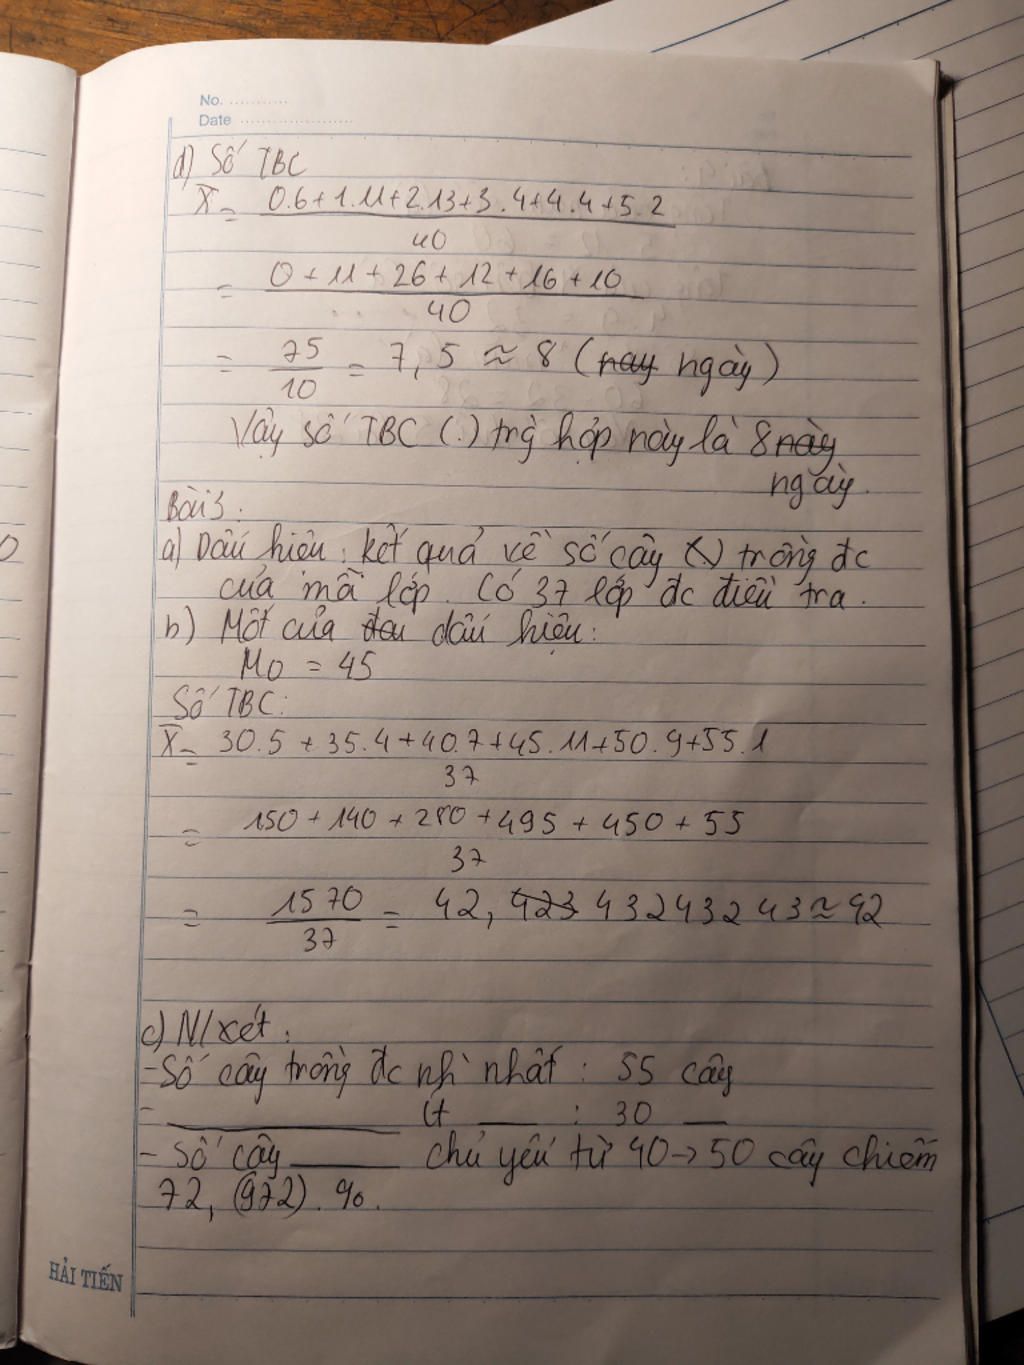 No. ............
Date ......................
d) Số TBC
X̄ = 0.6+1.11+2.13+3.4+4.4+5.2
40
= 0+11+26+12+16+10
40
= 75
10
= 7,5 ≈ 8 (nay ngày)
Vậy số TBC (.) trg hợp này là 8 này
ngày.
Bài 3.
a) Dấu hiệu: kết quả về số cây (.) trồng đc
của mỗi lớp. Có 37 lớp đc điều tra.
b) Mốt của dấu hiệu:
M0 = 45
Số TBC:
X̄ = 30.5+35.4+40.7+45.11+50.9+55.1
37
= 150+140+280+495+450+55
37
= 1570
37
= 42, 423 43243243 ≈ 42
c) N/xét:
- Số cây trồng đc nhì nhất: 55 cây
- ____ ít ____ : 30 ____
- Số cây ____ chủ yếu từ 40 → 50 cây chiếm
72, (972). %.
HẢI TIẾN